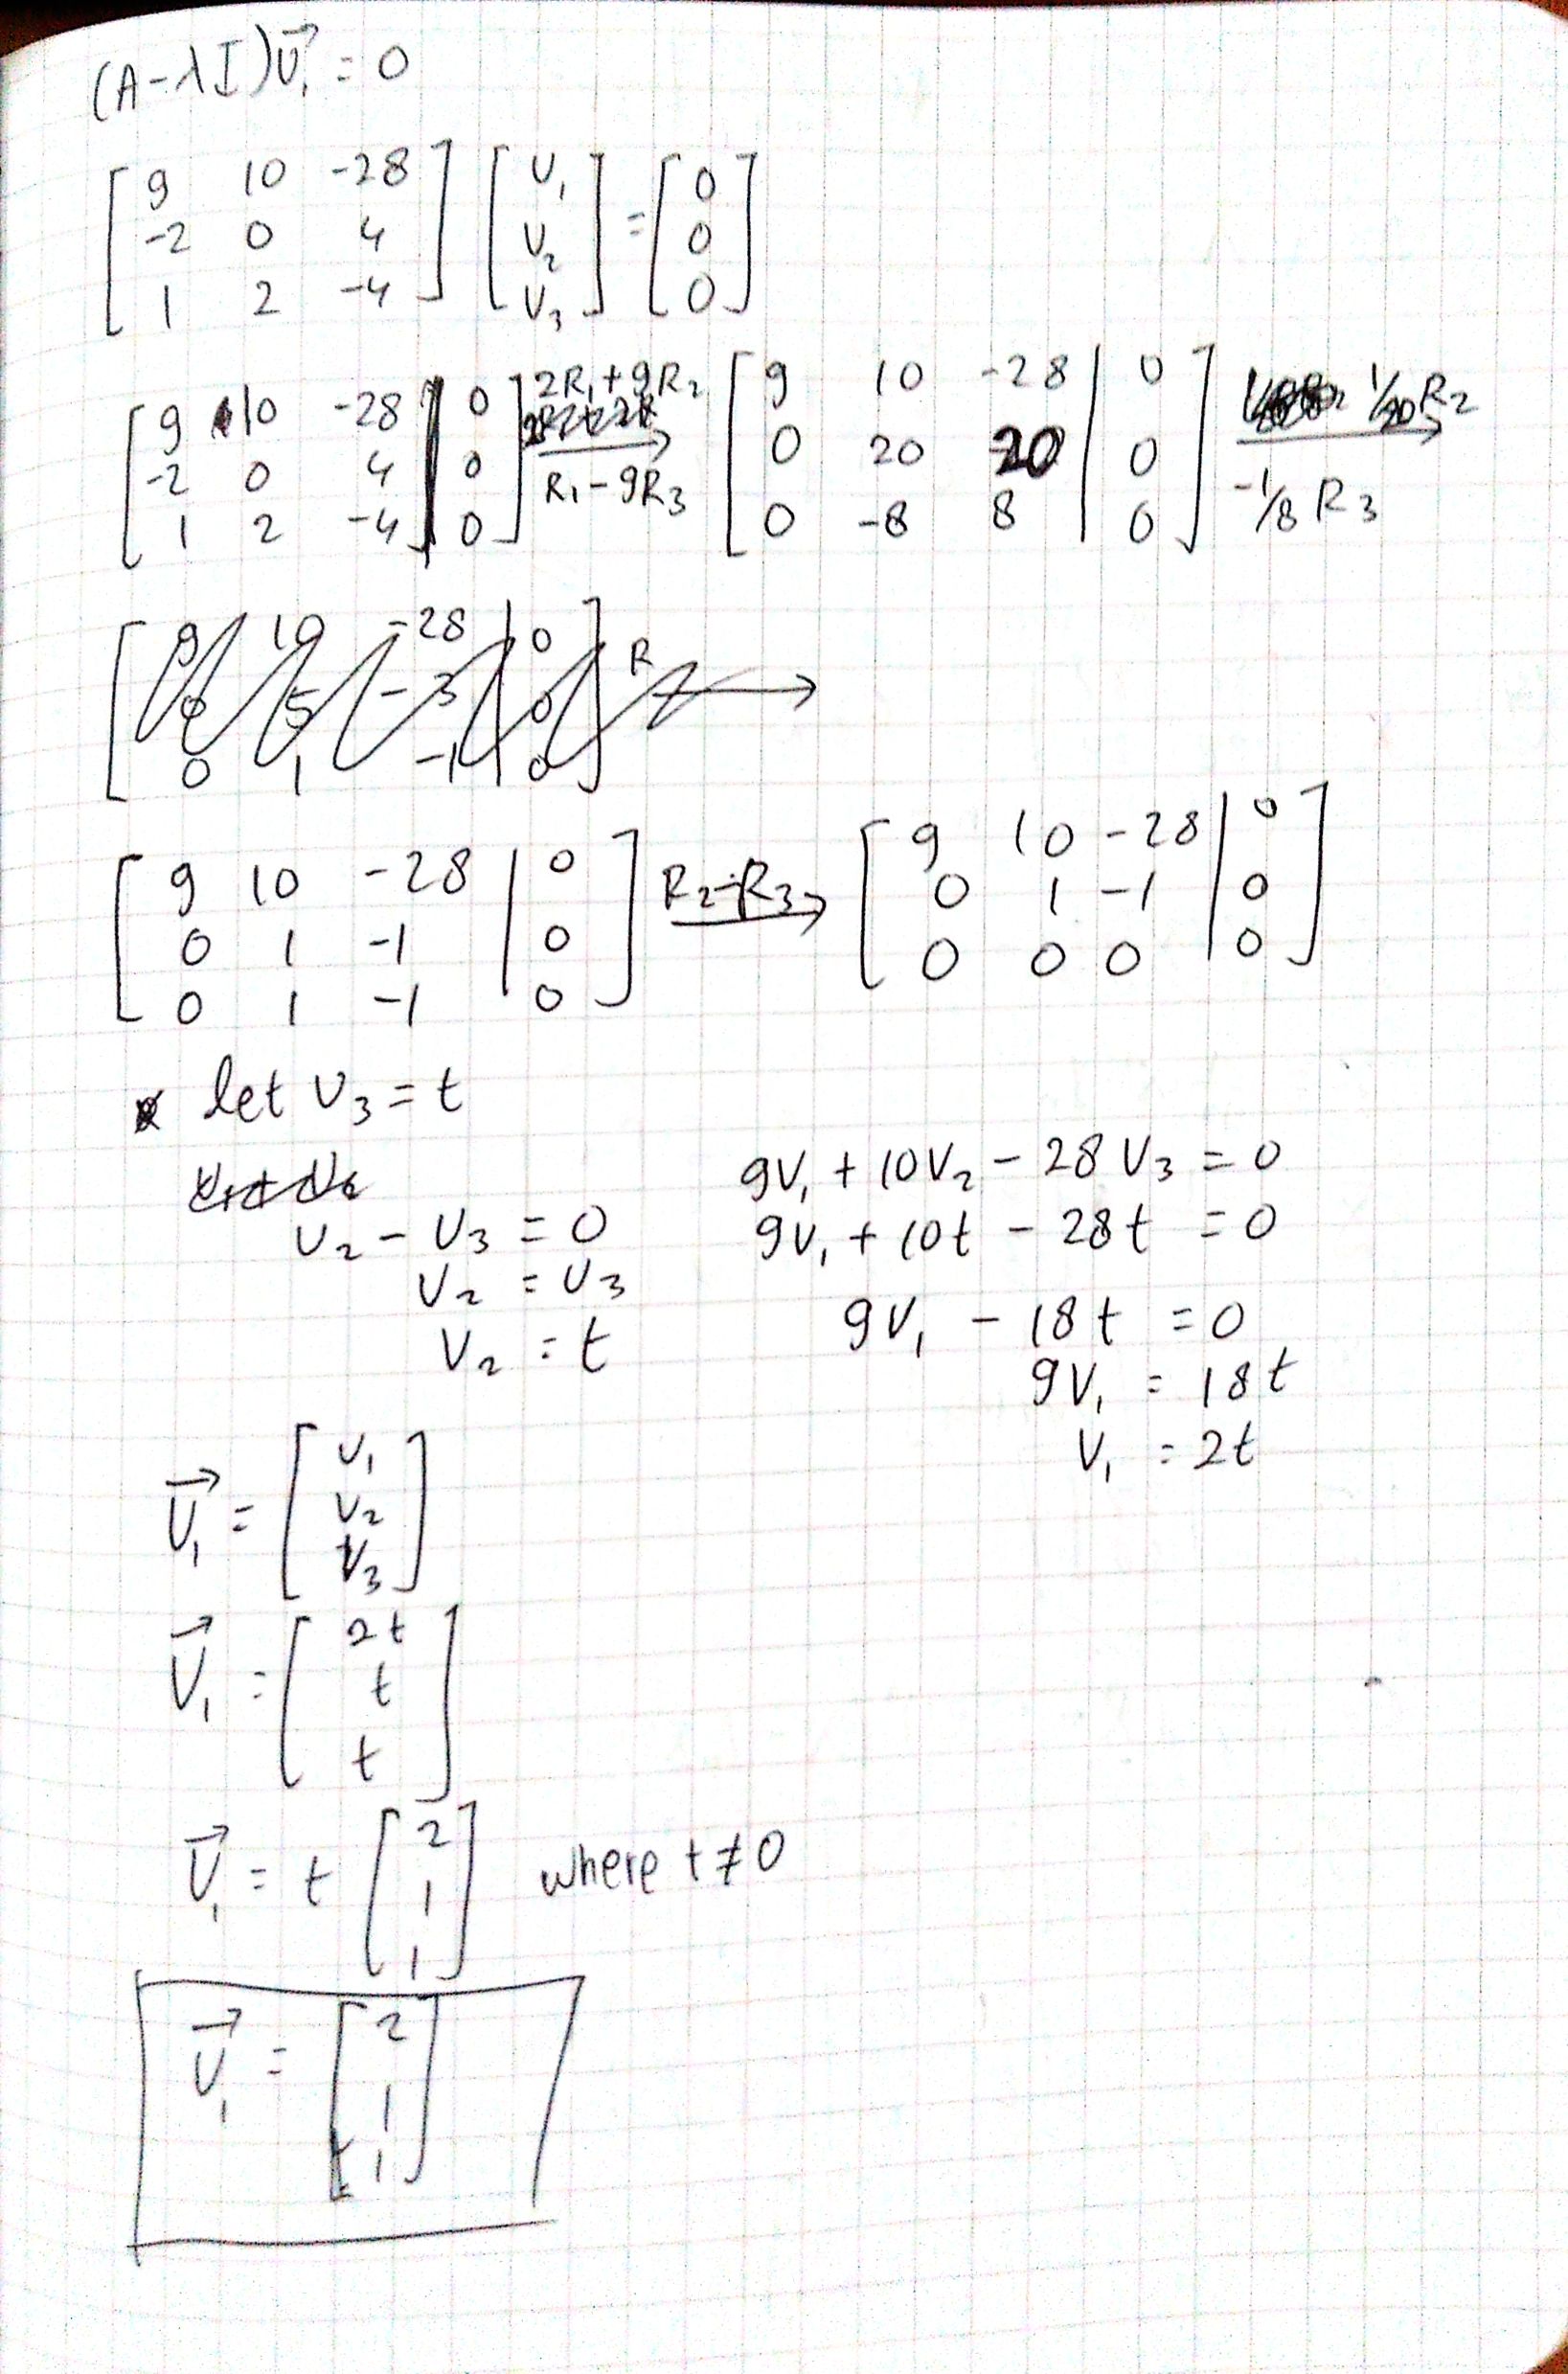 (A-λI)V⃗₁ = 0
[9 10 -28; -2 0 4; 1 2 -4] [V₁; V₂; V₃] = [0; 0; 0]
[9 10 -28 | 0; -2 0 4 | 0; 1 2 -4 | 0] 2R₁+9R₂ R₁-9R₃ → [9 10 -28 | 0; 0 20 -20 | 0; 0 -8 8 | 0] 1/20 R₂ -1/8 R₃ →
[9 10 -28 | 0; 0 5 -3 | 0; 0 1 -1 | 0] R →
[9 10 -28 | 0; 0 1 -1 | 0; 0 1 -1 | 0] R₂-R₃ → [9 10 -28 | 0; 0 1 -1 | 0; 0 0 0 | 0]
let V₃ = t
V₂ - V₃ = 0
V₂ = V₃
V₂ = t
9V₁ + 10V₂ - 28V₃ = 0
9V₁ + 10t - 28t = 0
9V₁ - 18t = 0
9V₁ = 18t
V₁ = 2t
V⃗₁ = [V₁; V₂; V₃]
V⃗₁ = [2t; t; t]
V⃗₁ = t [2; 1; 1] where t ≠ 0
V⃗₁ = [2; 1; 1]